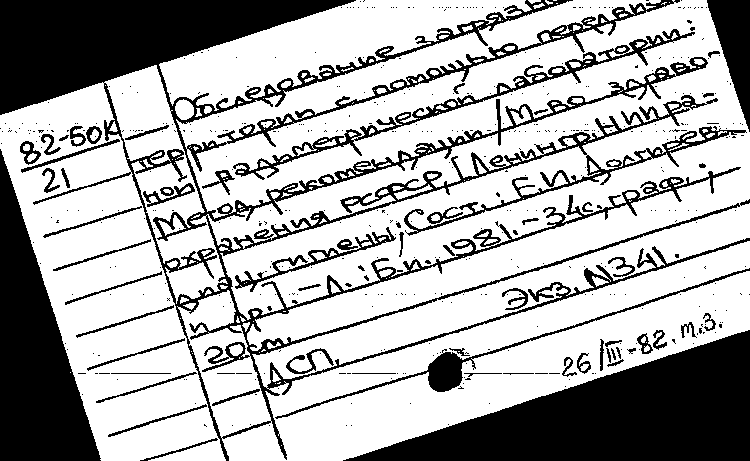 82-БОК
21
Обследование загрязн
территории с помощью передвиж
ной радиметрической лаборатории:
Метод. рекомендации /М-во здраво-
охранения РСФСР, [Ленингр. НИИ ра-
диац. гигиены; Сост.: Е.И. Долгирев
и др.]. - Л.: Б.и., 1981. - 34с., граф.;
20см.
Экз. N341.
ДСП.
26/III-82. т.з.